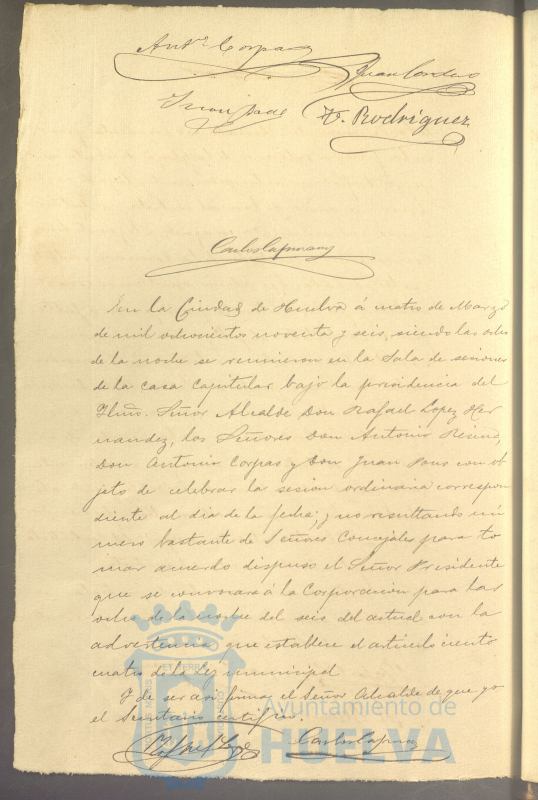 Antº Corpas
Juan Cordero
F. Rodriguez
Carlos
En la Ciudad de Huelva á cuatro de Marzo
de mil ochocientos noventa y seis, siendo las ocho
de la noche se reunieron en la Sala de sesiones
de la casa Capitular bajo la presidencia del
Iltmo. Señor Alcalde Don Rafael Lopez Her
nandez, los Señores Don Antonio
Don Antonio Corpas y Don Juan Pons con ob
jeto de celebrar la sesión ordinaria correspon
diente al dia de la fecha; y no resultando nú
mero bastante de Señores Concejales para to
mar acuerdo dispuso el Señor Presidente
que se convocará á la Corporación para las
ocho de la noche del seis del actual con la
advertencia que establece el articulo ciento
cuatro de la ley municipal.
Y de ser asi firma el Señor Alcalde de que yo
el Secretario certifico.
Rafael Lopez
Carlos
Ayuntamiento de
HUELVA